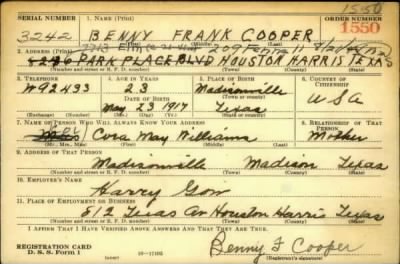 1550
SERIAL NUMBER 1. NAME (Print) ORDER NUMBER
3242 BENNY FRANK COOPER 1550
(First) (Middle) (Last)
2. ADDRESS (Print)
PARK PLACE BLVD HOUSTON HARRIS TEXAS
(Number and street or R. F. D. number) (Town) (County) (State)
3. TELEPHONE 4. AGE IN YEARS 5. PLACE OF BIRTH 6. COUNTRY OF CITIZENSHIP
W 92433 23 Madisonville USA
DATE OF BIRTH (Town or county)
May 23 1917 Texas
(Exchange) (Number) (Mo.) (Day) (Yr.) (State or country)
7. NAME OF PERSON WHO WILL ALWAYS KNOW YOUR ADDRESS 8. RELATIONSHIP OF THAT PERSON
Cora May Williams Mother
(Mr., Mrs., Miss) (First) (Middle) (Last)
9. ADDRESS OF THAT PERSON
Madisonville Madison Texas
(Number and street or R. F. D. number) (Town) (County) (State)
10. EMPLOYER'S NAME
Harry Gow
11. PLACE OF EMPLOYMENT OR BUSINESS
812 Texas av Houston Harris Texas
(Number and street or R. F. D. number) (Town) (County) (State)
I AFFIRM THAT I HAVE VERIFIED ABOVE ANSWERS AND THAT THEY ARE TRUE.
REGISTRATION CARD
D. S. S. Form 1 16—17105 Benny F Cooper
(Registrant's signature)